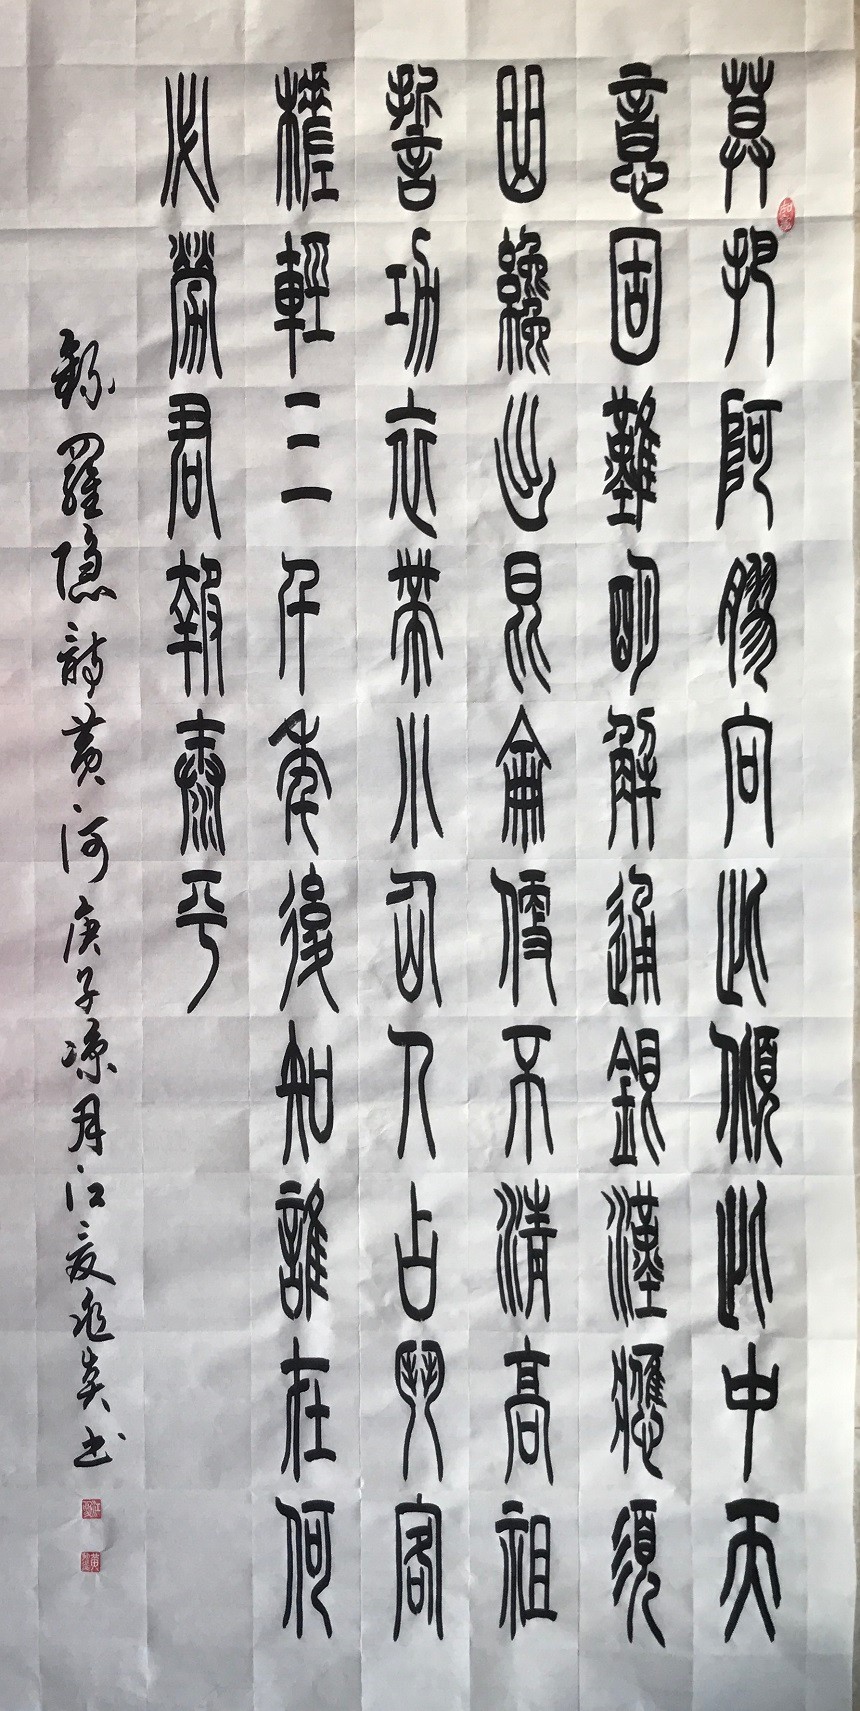 莫把阿膠向此傾此中天
意固難明解通銀漢應須
曲纔出昆侖便不清高祖
誓功衣帶小仙人占鬥客
槎輕三千年後知誰在何
必勞君報泰平
錄羅隐詩黃河庚子凉月江夏英书